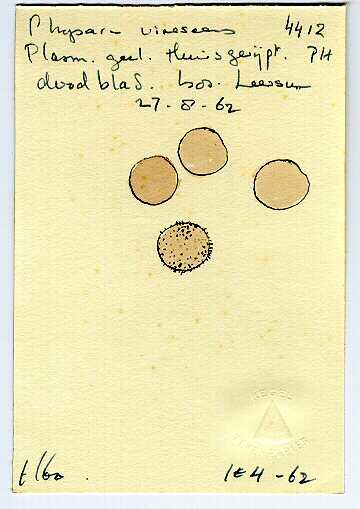 Physarum virescens 4412
Plasm. geel. thuis gerijpt. PH
dood blad. bos. Leersum
27-8-62
KEGEL
1E4-62